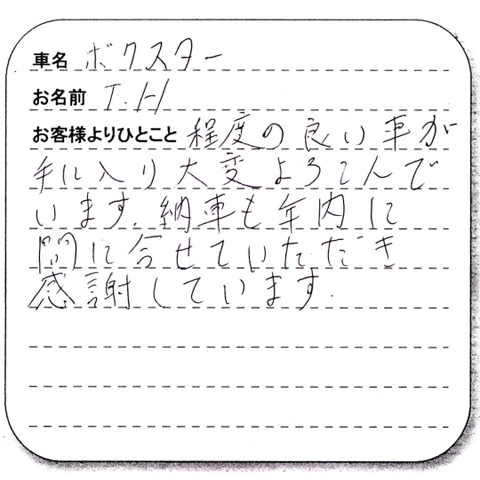 車名 ボクスター
お名前 T.H
お客様よりひとこと 程度の良い車が
手に入り大変よろこんで
います。納車も年内に
間に合せていただき
感謝しています。